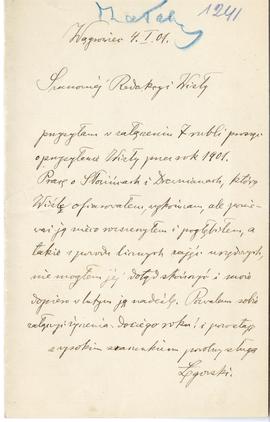 1241
Wągrowiec 4. I. 01.
Szanownej Redakcyi Wisły
przesyłam w załączeniu 7 rubli prosząc
o przysyłanie Wisły przez rok 1901.
Pracę o Słowianach i , którą
Wiśle ofiarowałem wykończam, ale ponie-
waż ją nieco rozszerzyłem i pogłębiłem, a
także z powodu licznych zajęć urzędowych,
nie mogłem jej dotąd skończyć i może
dopiero w lutym ją nadeślę. Pozwalam sobie
załączyć życzenia dosiego roku! i pozostaję
z wysokim szacunkiem powolny sługa